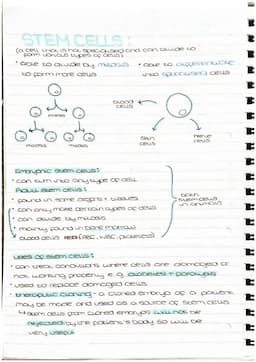 STEM CELLS:
(a cell that is not specialised and can divide to
form various types of cells)
• able to divide by mitosis
to form more cells
• able to differentiate
into specialised cells
mitosis
mitosis
mitosis
blood
cells
skin
cells
nerve
cells
Embryonic stem cells:
• can turn into any type of cell
Adult stem cells:
• found in some organs + tissues
• can only make certain types of cells
• can divide by mitosis
• mainly found in bone marrow
• blood cells (RBC, WBC, platelets)
both
stem cells
in animals
Uses of stem cells:
• can treat conditions where cells are damaged or
not working properly e.g. diabetes + paralysis
• used to replace damaged cells
• therapeutic cloning - a cloned embryo of a patient
may be made and used as a source of stem cells
↳ stem cells from cloned embryos will not be
rejected by the patient's body so will be
very useful